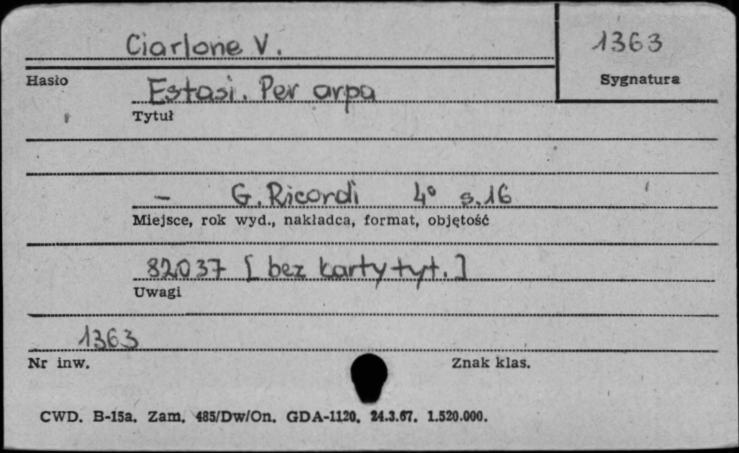 Ciarlone V.
1363
Hasło
Sygnatura
Estasi. Per arpa
Tytuł
- G. Ricordi 4° s. 16
Miejsce, rok wyd., nakładca, format, objętość
82037 [bez karty tyt.]
Uwagi
1363
Nr inw.
Znak klas.
CWD. B-15a. Zam. 485/Dw/On. GDA-1120. 24.3.67. 1.520.000.